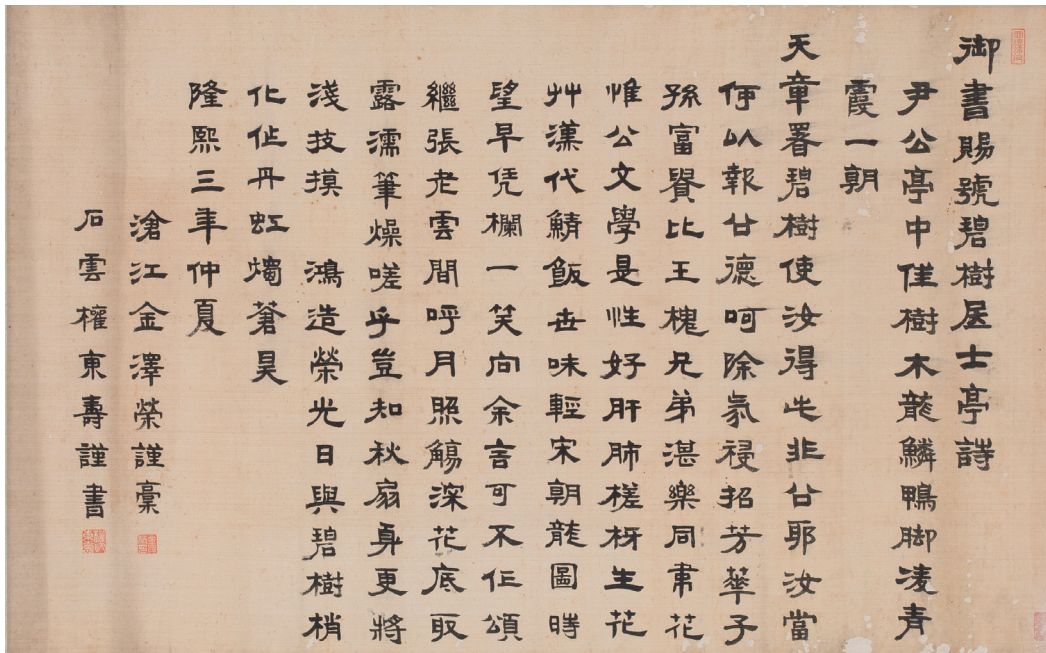 御書賜號碧樹居士亭詩
尹公亭中僅樹木龍鱗鴨脚凌青
霞一朝
天章署碧樹使汝得此非公耶汝當
何以報公德呵除氛祲招芳華子
孫富貴比王槐兄弟湛樂同韋花
惟公文學是性好肝肺槎枒生花
艸漢代鯖飯世味輕宋朝龍圖時
望早凭欄一笑向余言可不作頌
繼張老雲間呼月照觴深花底取
露濡筆燥嗟乎豈知秋扇身更將
淺技摸 鴻造榮光日與碧樹梢
化作丹虹燭蒼昊
隆熙三年仲夏
滄江金澤榮謹稾
石雲權東壽謹書